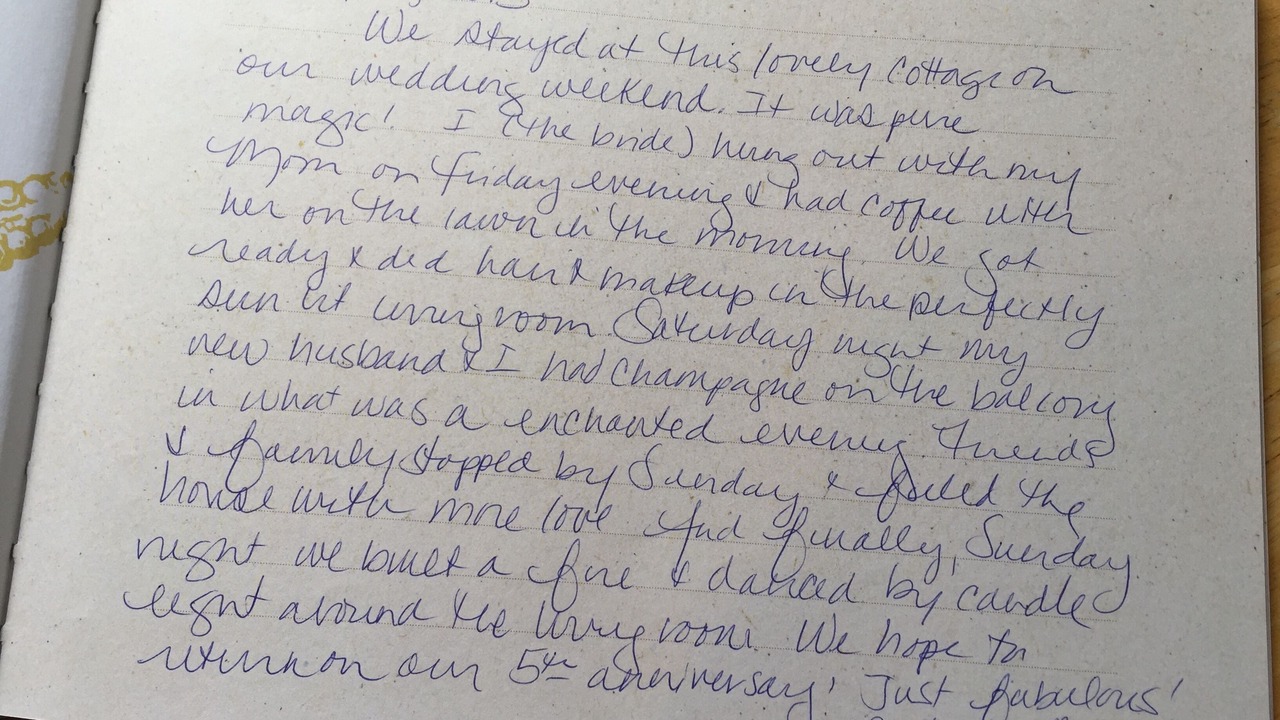 We stayed at this lovely cottage on
our wedding weekend. It was pure
magic! I (the bride) hung out with my
Mom on Friday evening & had coffee with
her on the lawn in the morning. We got
ready & did hair & makeup in the perfectly
sun lit living room Saturday night my
new husband & I had champagne on the balcony
in what was a enchanted evening. Friends
& family stopped by Sunday & fueled the
house with more love. And finally, Sunday
night we built a fire & danced by candle
light around the living room. We hope to
return on our 5th anniversary! Just fabulous!